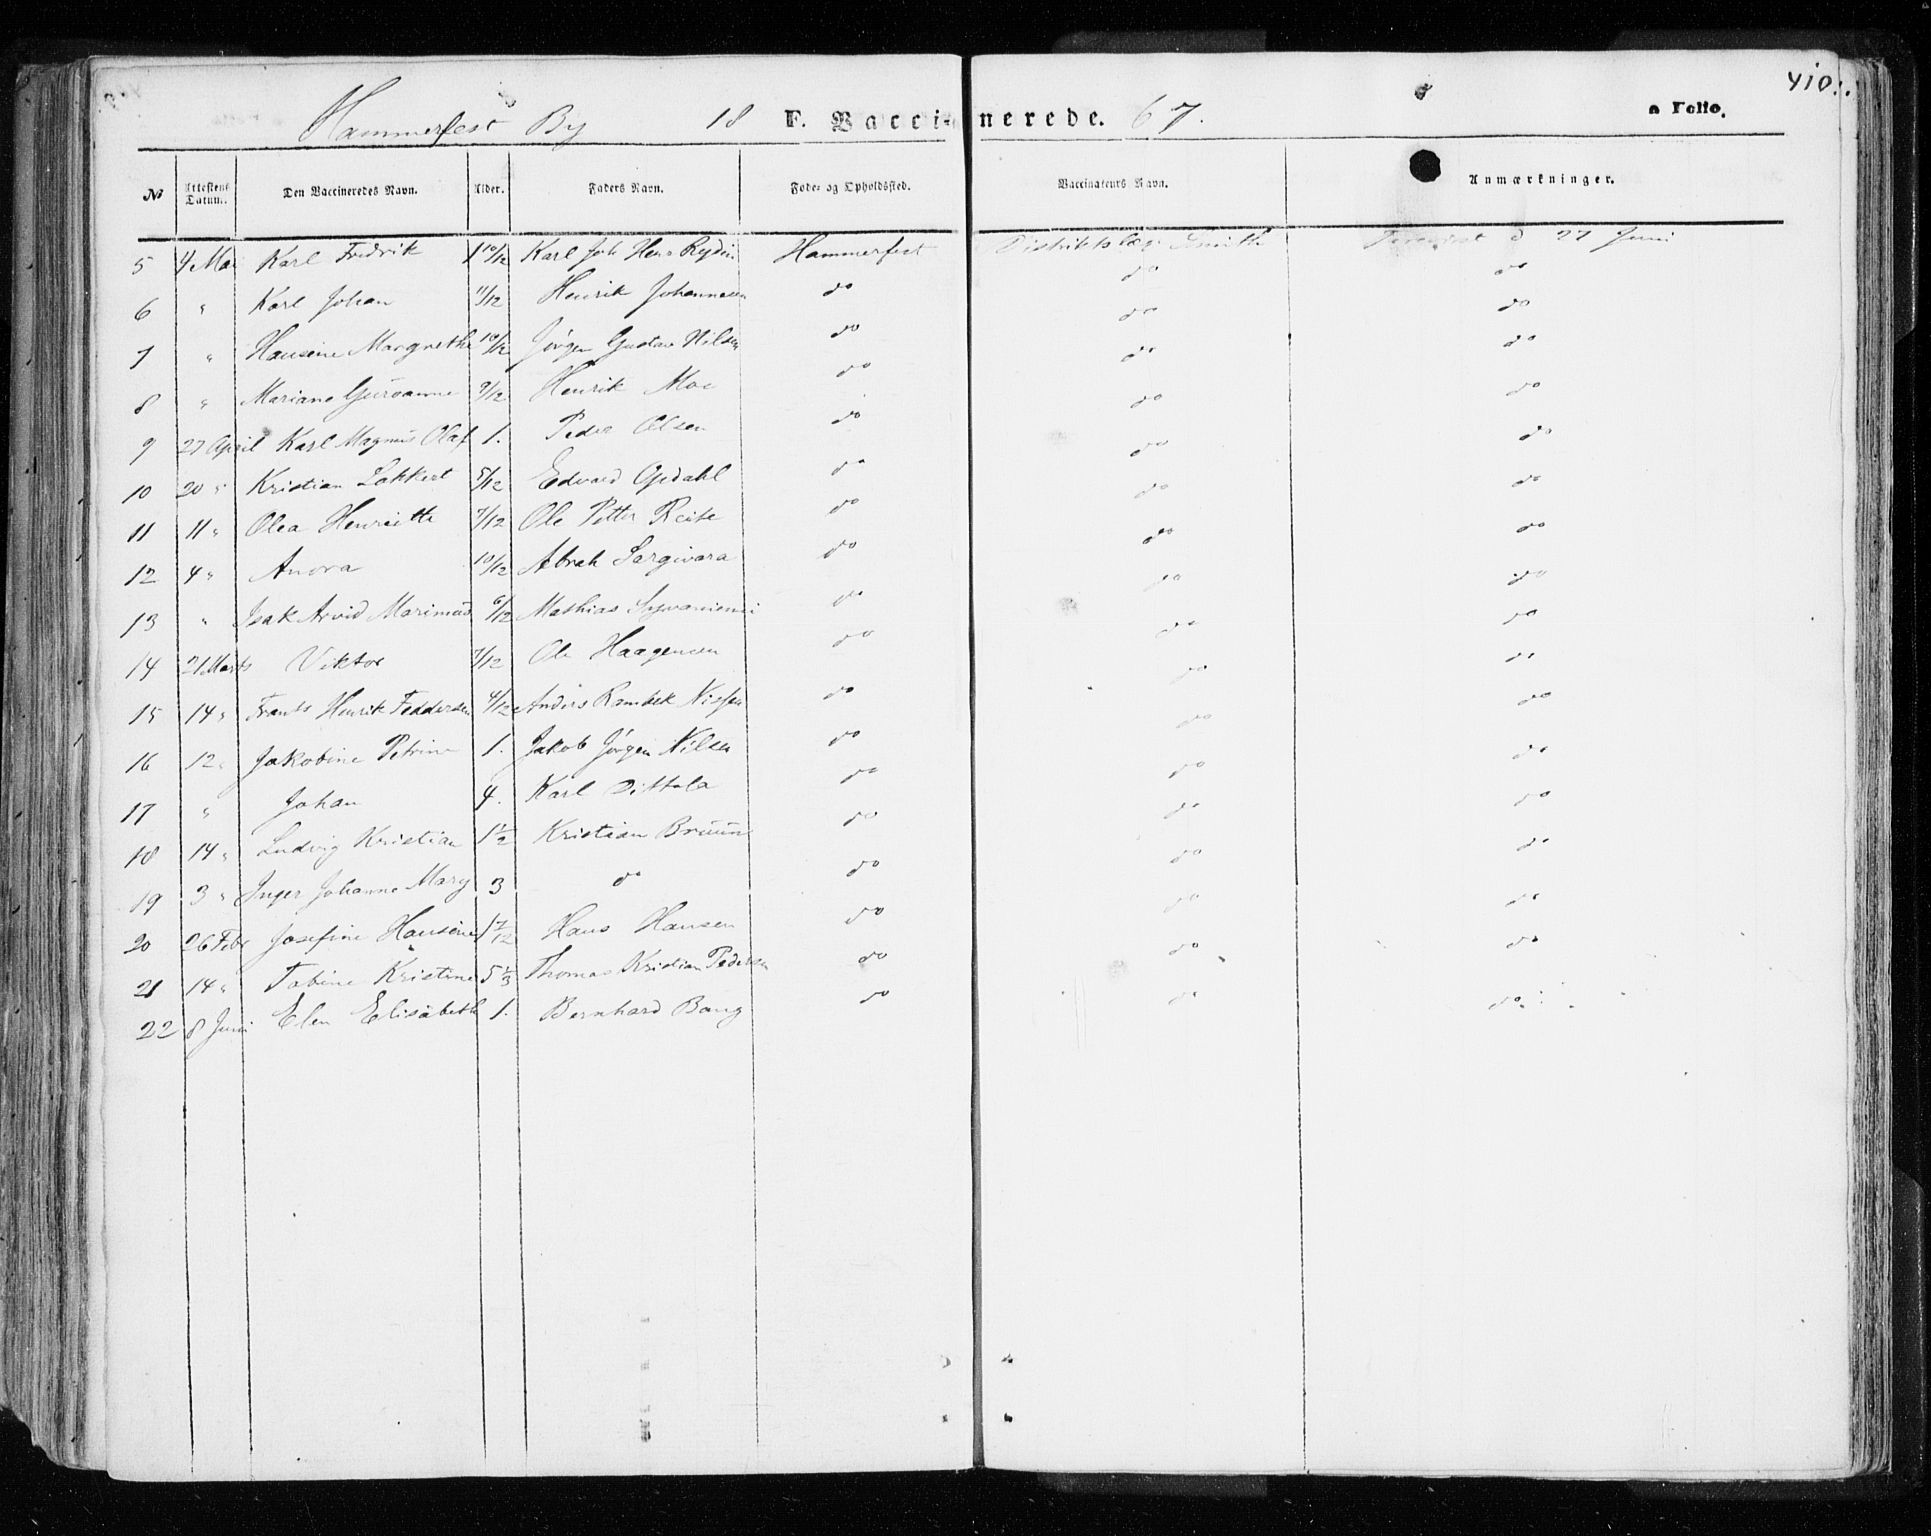 410.
Hammerfest By 18 F. Vaccinerede. 67. Folio.
No Attestens Datum. Den Vaccineredes Navn. Alder. Faders Navn. Føde- og Opholdssted. Vaccinateurs Navn. Anmærkninger.
5 4 Mai Karl Fredrik 1 10/12 Karl Joh Henr Rydin Hammerfest Distriktslæg. Smith Forevist d 27 Juni
6 " Karl Johan 11/12 Henrik Johannesen do do do
7 " Hansine Margrethe 10/12 Jørgen Gustav Nilsen do do do
8 " Mariane Guroanne 9/12 Henrik Moe do do do
9 27 April Karl Magnus Olaf 1. Peder Olsen do do do
10 20 " Kristian Lakkert 5/12 Edvard Opdahl do do do
11 11 " Olea Henriette 7/12 Ole Petter Reite do do do
12 4 " Anora 10/12 Abrah Sargivara do do do
13 " Isak Arvid 6/12 Mathias do do do
14 21 Marts Viktor 7/12 Ole Haagensen do do do
15 14 " Frants Henrik Feddersen 4/12 Anders Rambek Nissen do do do
16 12 " Jakobine Petrine 1. Jakob Jørgen Nilsen do do do
17 " Johan 4. Karl Dittala do do do
18 14 " Ludvig Kristian 1 1/2 Kristian Bruun do do do
19 3 " Inger Johanne Mary 3 do do do do
20 26 Febr Josefine Hansine 1 7/12 Hans Hansen do do do
21 14 " Tobine Kristine 5 1/3 Thomas Kristian Pedersen do do do
22 8 Juni Elen Elisabeth 1. Bernhard Bang do do do